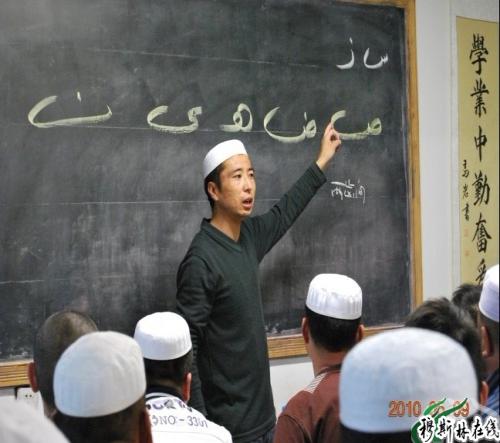 س ز
ص ض ه ى ن
學業中勤奮
NO-3301
2010
09
穆斯林在线